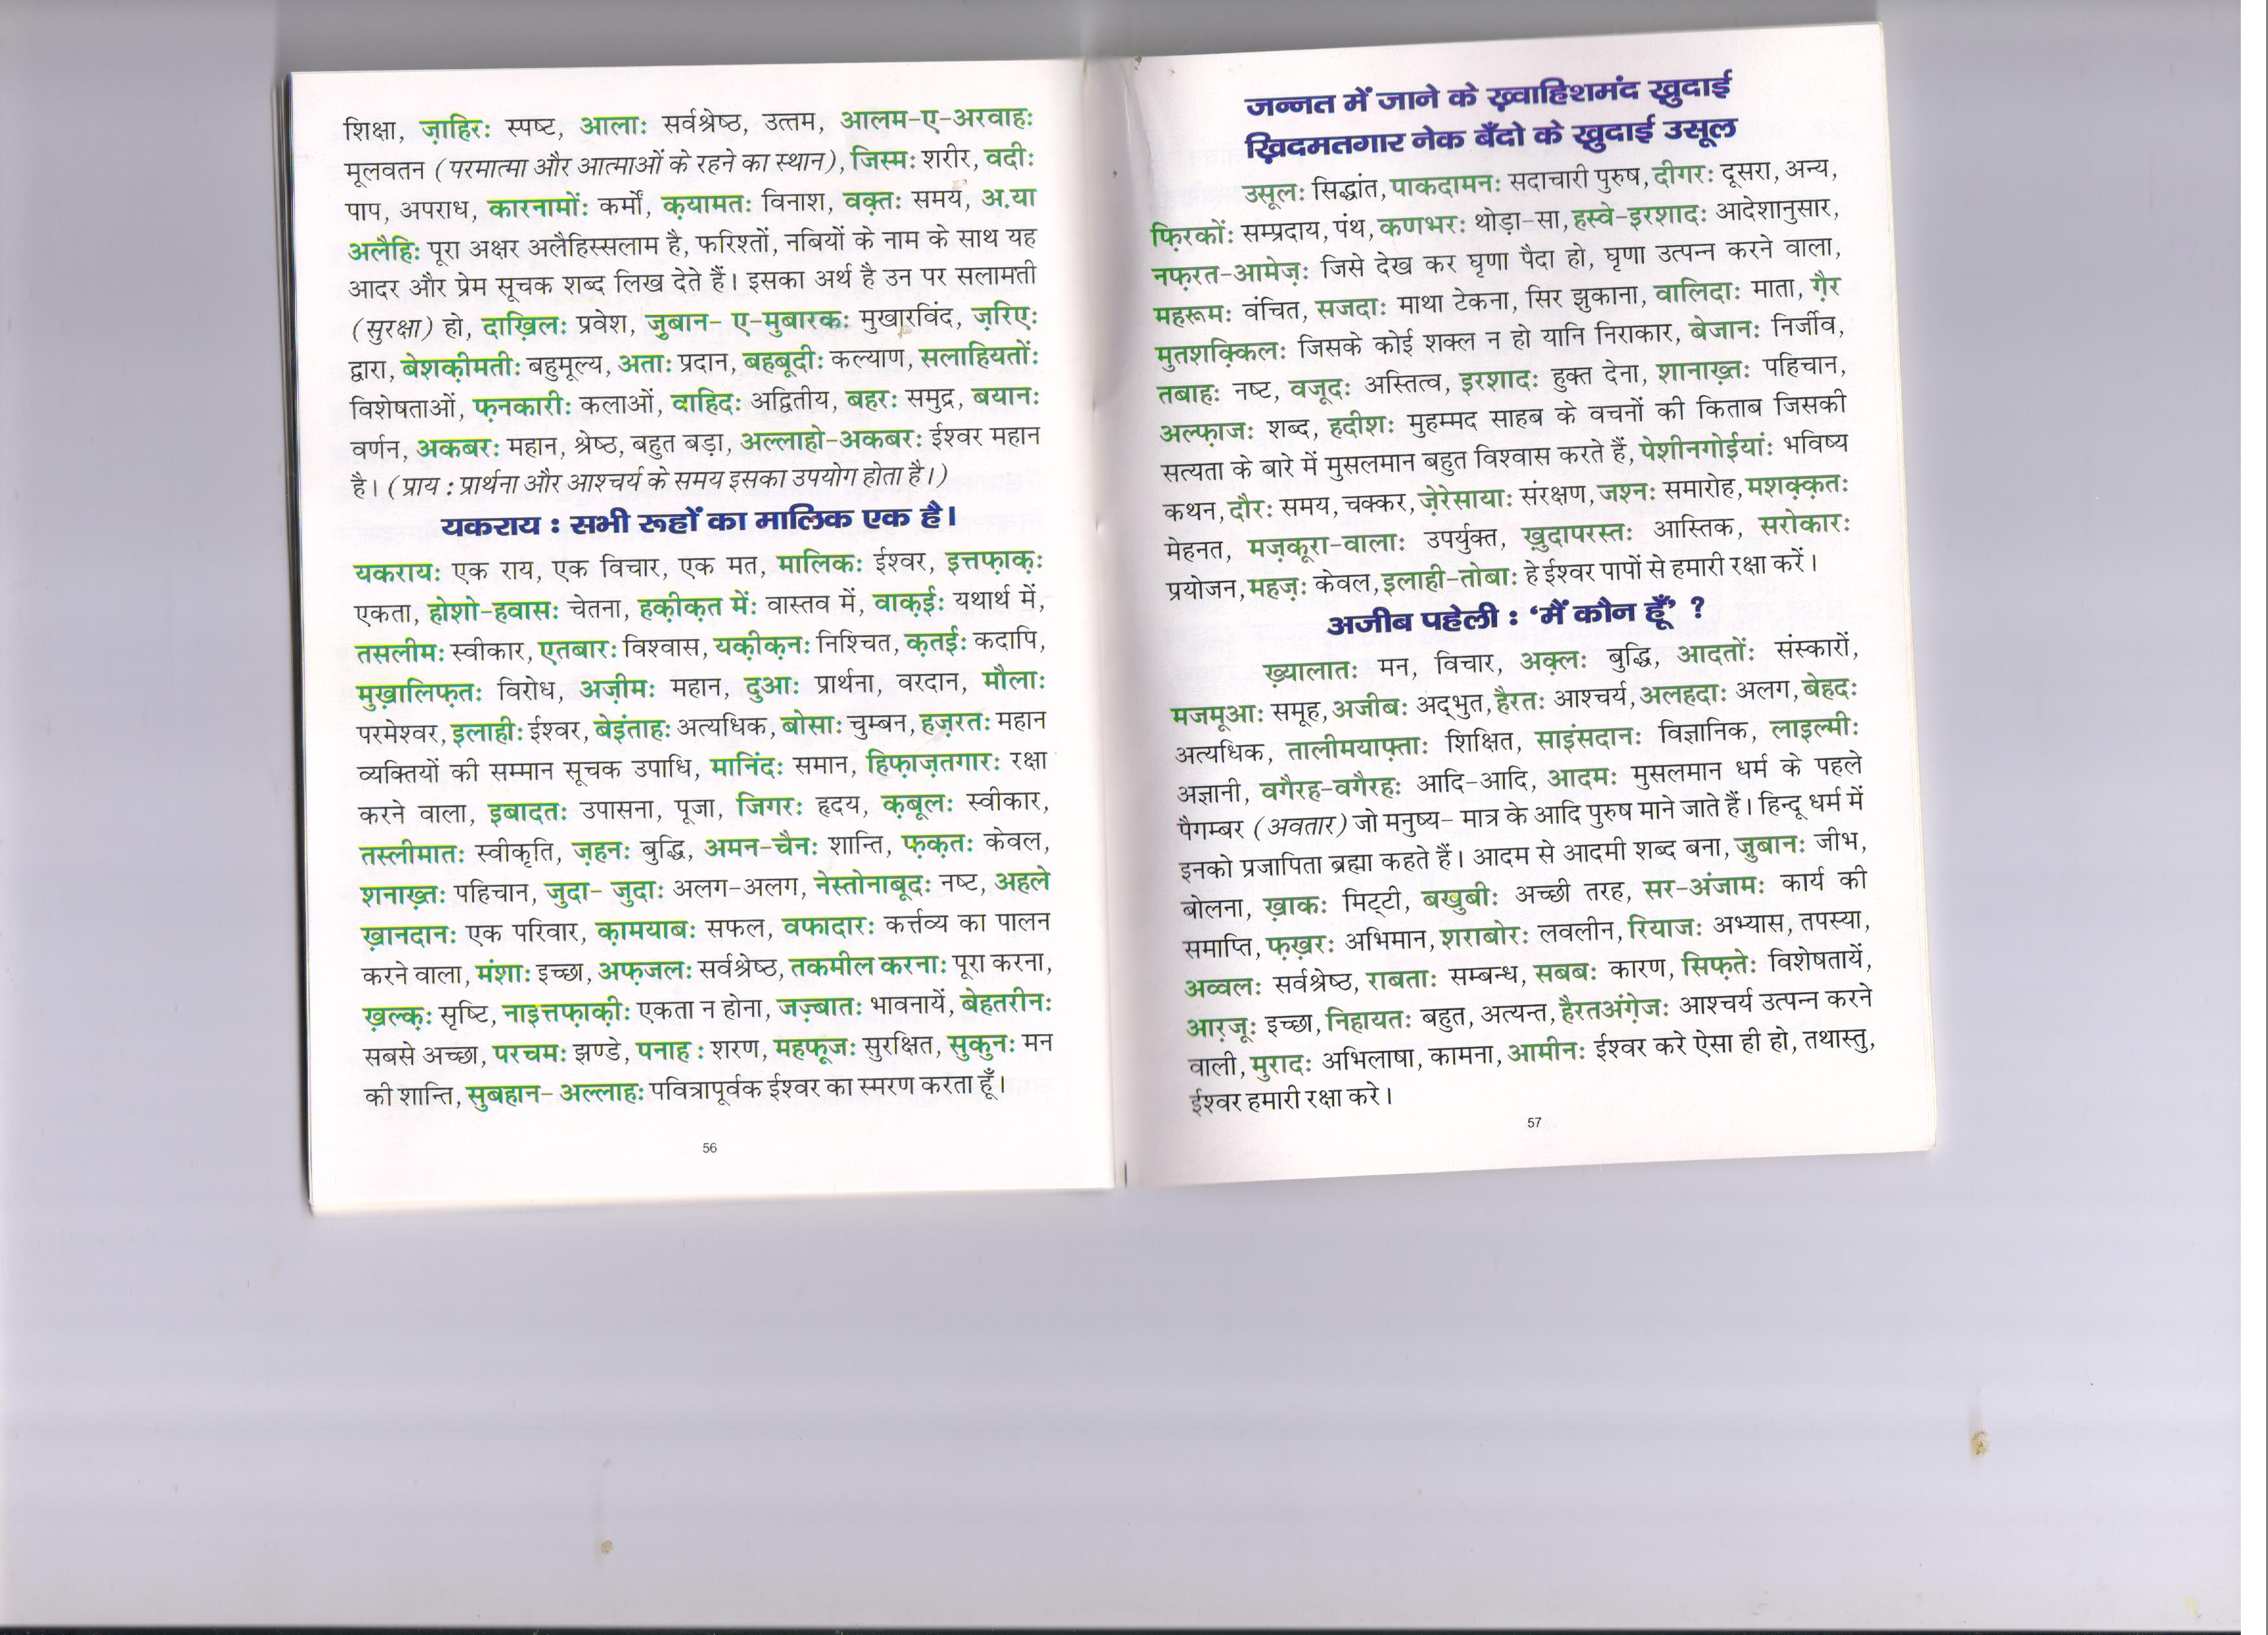 शिक्षा, ज़ाहिरः स्पष्ट, आलाः सर्वश्रेष्ठ, उत्तम, आलम-ए-अरवाहः
मूलवतन (परमात्मा और आत्माओं के रहने का स्थान), जिस्मः शरीर, वदीः
पाप, अपराध, कारनामोंः कर्मों, क़यामतः विनाश, वक़्तः समय, अ.या
अलैहिः पूरा अक्षर अलैहिस्सलाम है, फरिश्तों, नबियों के नाम के साथ यह
आदर और प्रेम सूचक शब्द लिख देते हैं। इसका अर्थ है उन पर सलामती
(सुरक्षा) हो, दाख़िलः प्रवेश, जु़बान- ए-मुबारकः मुखारविंद, ज़रिएः
द्वारा, बेशक़ीमतीः बहुमूल्य, अताः प्रदान, बहबूदीः कल्याण, सलाहियतोंः
विशेषताओं, फ़नकारीः कलाओं, वाहिदः अद्वितीय, बहरः समुद्र, बयानः
वर्णन, अकबरः महान, श्रेष्ठ, बहुत बड़ा, अल्लाहो-अकबरः ईश्वर महान
है। (प्राय : प्रार्थना और आश्चर्य के समय इसका उपयोग होता है।)
यकराय : सभी रूहों का मालिक एक है।
यकरायः एक राय, एक विचार, एक मत, मालिकः ईश्वर, इत्तफ़ाक़ः
एकता, होशो-हवासः चेतना, हक़ीक़त मेंः वास्तव में, वाक़ईः यथार्थ में,
तसलीमः स्वीकार, एतबारः विश्वास, यक़ीक़नः निश्चित, क़तईः कदापि,
मुख़ालिफ़तः विरोध, अज़ीमः महान, दुआः प्रार्थना, वरदान, मौलाः
परमेश्वर, इलाहीः ईश्वर, बेइंताहः अत्यधिक, बोसाः चुम्बन, हज़रतः महान
व्यक्तियों की सम्मान सूचक उपाधि, मानिंदः समान, हिफ़ाज़तगारः रक्षा
करने वाला, इबादतः उपासना, पूजा, जिगरः हृदय, क़बूलः स्वीकार,
तस्लीमातः स्वीकृति, ज़हनः बुद्धि, अमन-चैनः शान्ति, फ़क़तः केवल,
शनाख़्तः पहिचान, जुदा- जुदाः अलग-अलग, नेस्तोनाबूदः नष्ट, अहले
ख़ानदानः एक परिवार, क़ामयाबः सफल, वफादारः कर्त्तव्य का पालन
करने वाला, मंशाः इच्छा, अफ़जलः सर्वश्रेष्ठ, तकमील करनाः पूरा करना,
ख़ल्क़ः सृष्टि, नाइत्तफ़ाक़ीः एकता न होना, जज़्बातः भावनायें, बेहतरीनः
सबसे अच्छा, परचमः झण्डे, पनाह : शरण, महफूजः सुरक्षित, सुकुनः मन
की शान्ति, सुबहान- अल्लाहः पवित्रापूर्वक ईश्वर का स्मरण करता हूँ।
56
जन्नत में जाने के ख़्वाहिशमंद ख़ुदाई
ख़िदमतगार नेक बँदो के ख़ुदाई उसूल
उसूलः सिद्धांत, पाकदामनः सदाचारी पुरुष, दीगरः दूसरा, अन्य,
फ़िरकोंः सम्प्रदाय, पंथ, कणभरः थोड़ा-सा, हस्वे-इरशादः आदेशानुसार,
नफ़रत-आमेज़ः जिसे देख कर घृणा पैदा हो, घृणा उत्पन्न करने वाला,
महरूमः वंचित, सजदाः माथा टेकना, सिर झुकाना, वालिदाः माता, ग़ैर
मुतशक़्किलः जिसके कोई शक्ल न हो यानि निराकार, बेजानः निर्जीव,
तबाहः नष्ट, वजूदः अस्तित्व, इरशादः हुक्त देना, शानाख़्तः पहिचान,
अल्फ़ाजः शब्द, हदीशः मुहम्मद साहब के वचनों की किताब जिसकी
सत्यता के बारे में मुसलमान बहुत विश्वास करते हैं, पेशीनगोईयांः भविष्य
कथन, दौरः समय, चक्कर, ज़ेरेसायाः संरक्षण, जश्नः समारोह, मशक़्क़तः
मेहनत, मज़कूरा-वालाः उपर्युक्त, ख़ुदापरस्तः आस्तिक, सरोकारः
प्रयोजन, महज़ः केवल, इलाही-तोबाः हे ईश्वर पापों से हमारी रक्षा करें।
अजीब पहेली : ‘मैं कौन हूँ’ ?
ख़्यालातः मन, विचार, अक़्लः बुद्धि, आदतोंः संस्कारों,
मजमूआः समूह, अजीबः अद्भुत, हैरतः आश्चर्य, अलहदाः अलग, बेहदः
अत्यधिक, तालीमयाफ़्ताः शिक्षित, साइंसदानः विज्ञानिक, लाइल्मीः
अज्ञानी, वगैरह-वगैरहः आदि-आदि, आदमः मुसलमान धर्म के पहले
पैगम्बर (अवतार) जो मनुष्य- मात्र के आदि पुरुष माने जाते हैं। हिन्दू धर्म में
इनको प्रजापिता ब्रह्मा कहते हैं। आदम से आदमी शब्द बना, ज़ुबानः जीभ,
बोलना, ख़ाकः मिट्टी, बखुबीः अच्छी तरह, सर-अंजामः कार्य की
समाप्ति, फ़ख़रः अभिमान, शराबोरः लवलीन, रियाजः अभ्यास, तपस्या,
अव्वलः सर्वश्रेष्ठ, राबताः सम्बन्ध, सबबः कारण, सिफ़तेः विशेषतायें,
आरज़ूः इच्छा, निहायतः बहुत, अत्यन्त, हैरतअंगे़जः आश्चर्य उत्पन्न करने
वाली, मुरादः अभिलाषा, कामना, आमीनः ईश्वर करे ऐसा ही हो, तथास्तु,
ईश्वर हमारी रक्षा करे।
57